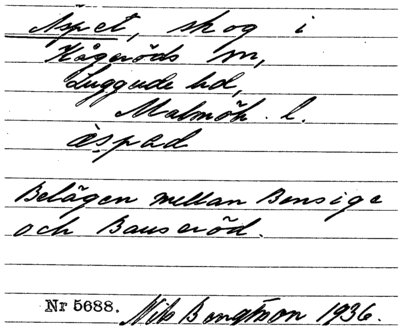 Äspet, skog i
Kågeröds sn,
Luggude hd,
Malmöh. l.
äspad
Belägen mellan Bensige
och Bauseröd.
Nr 5688. Nils Bengtson 1936.